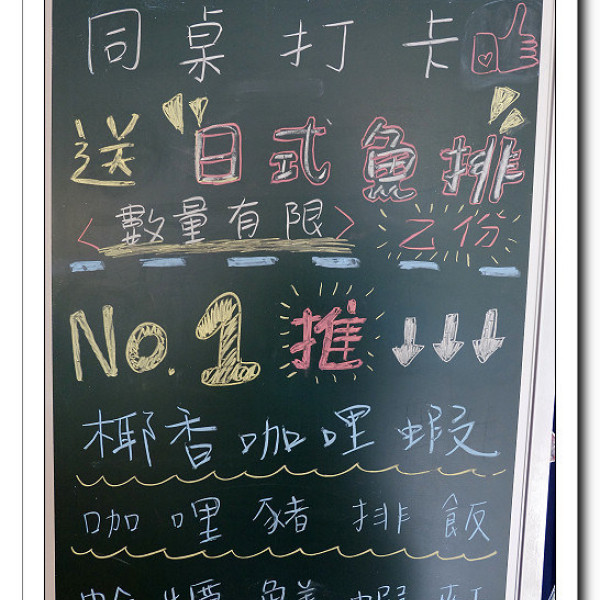 同桌打卡
送日式魚排
<數量有限>乙份
No.1推↓↓↓
椰香咖哩蝦
咖哩豬排飯